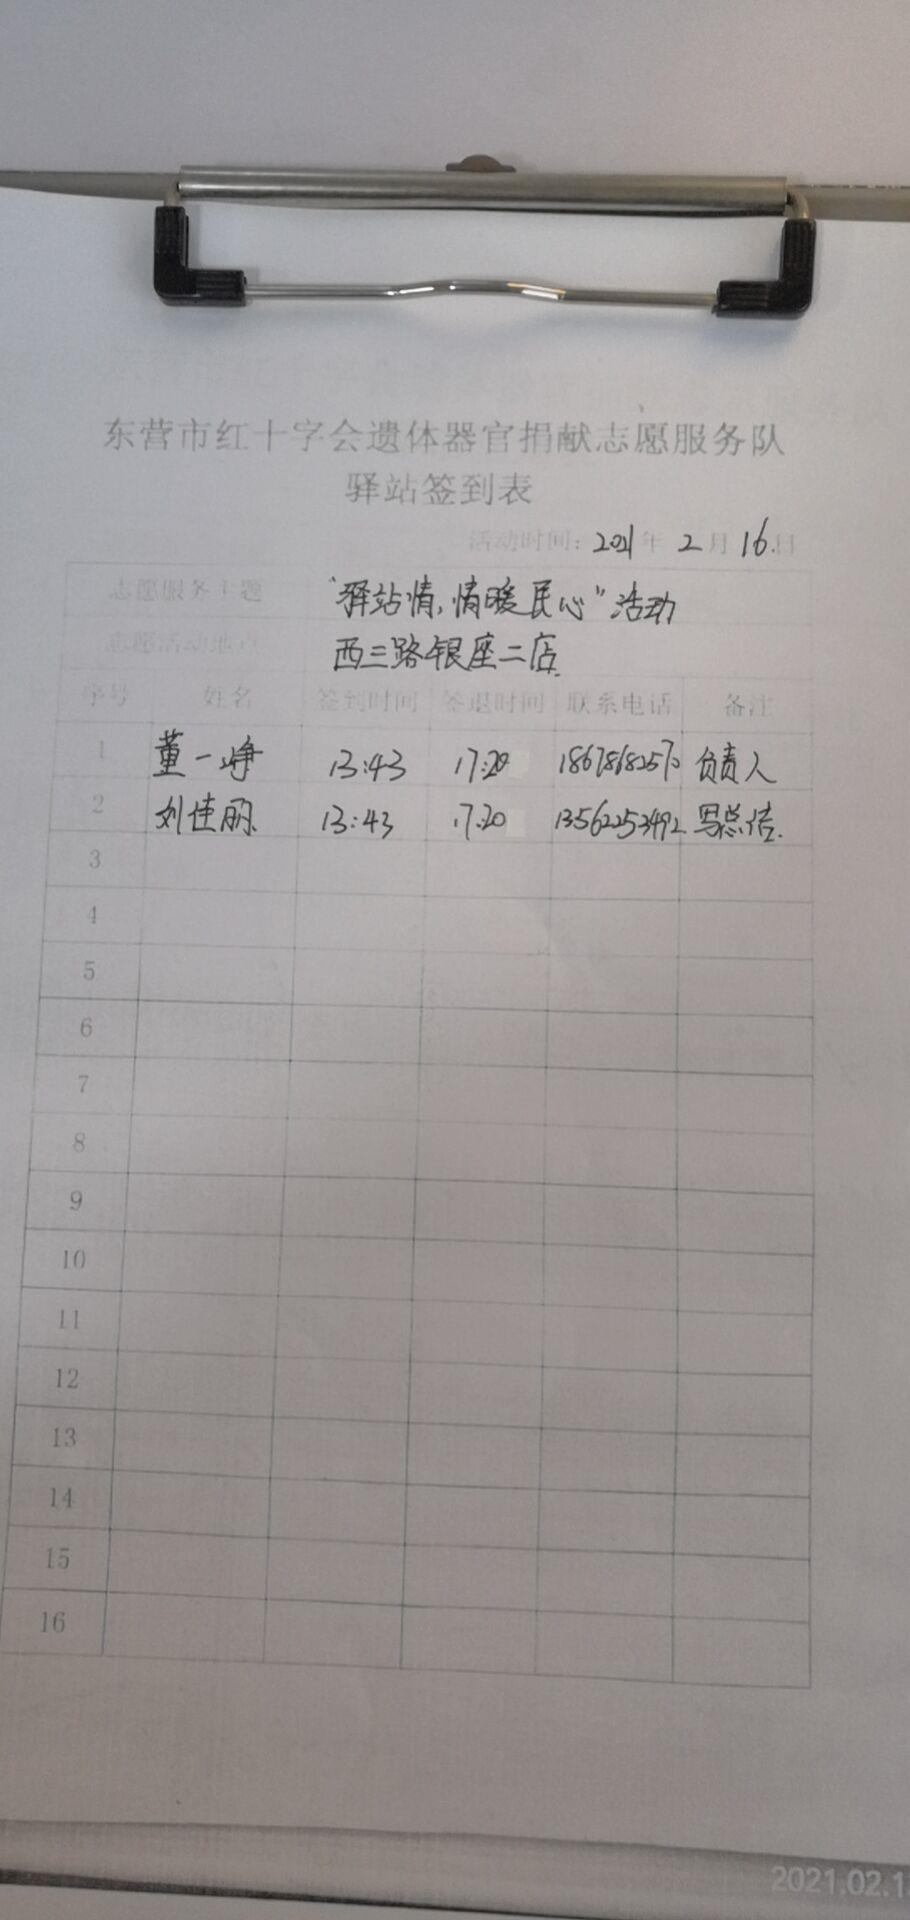 东营市红十字会遗体器官捐献志愿服务队
驿站签到表
活动时间：2021年2月16日
志愿服务主题 “驿站情,情暖民心”活动
志愿活动地点 西三路银座二店
序号 姓名 签到时间 签退时间 联系电话 备注
1 董一峥 13:43 17:20 负责人
2 刘佳丽 13:43 17:20 13562253492 写总结.
3
4
5
6
7
8
9
10
11
12
13
14
15
16
2021.02.1